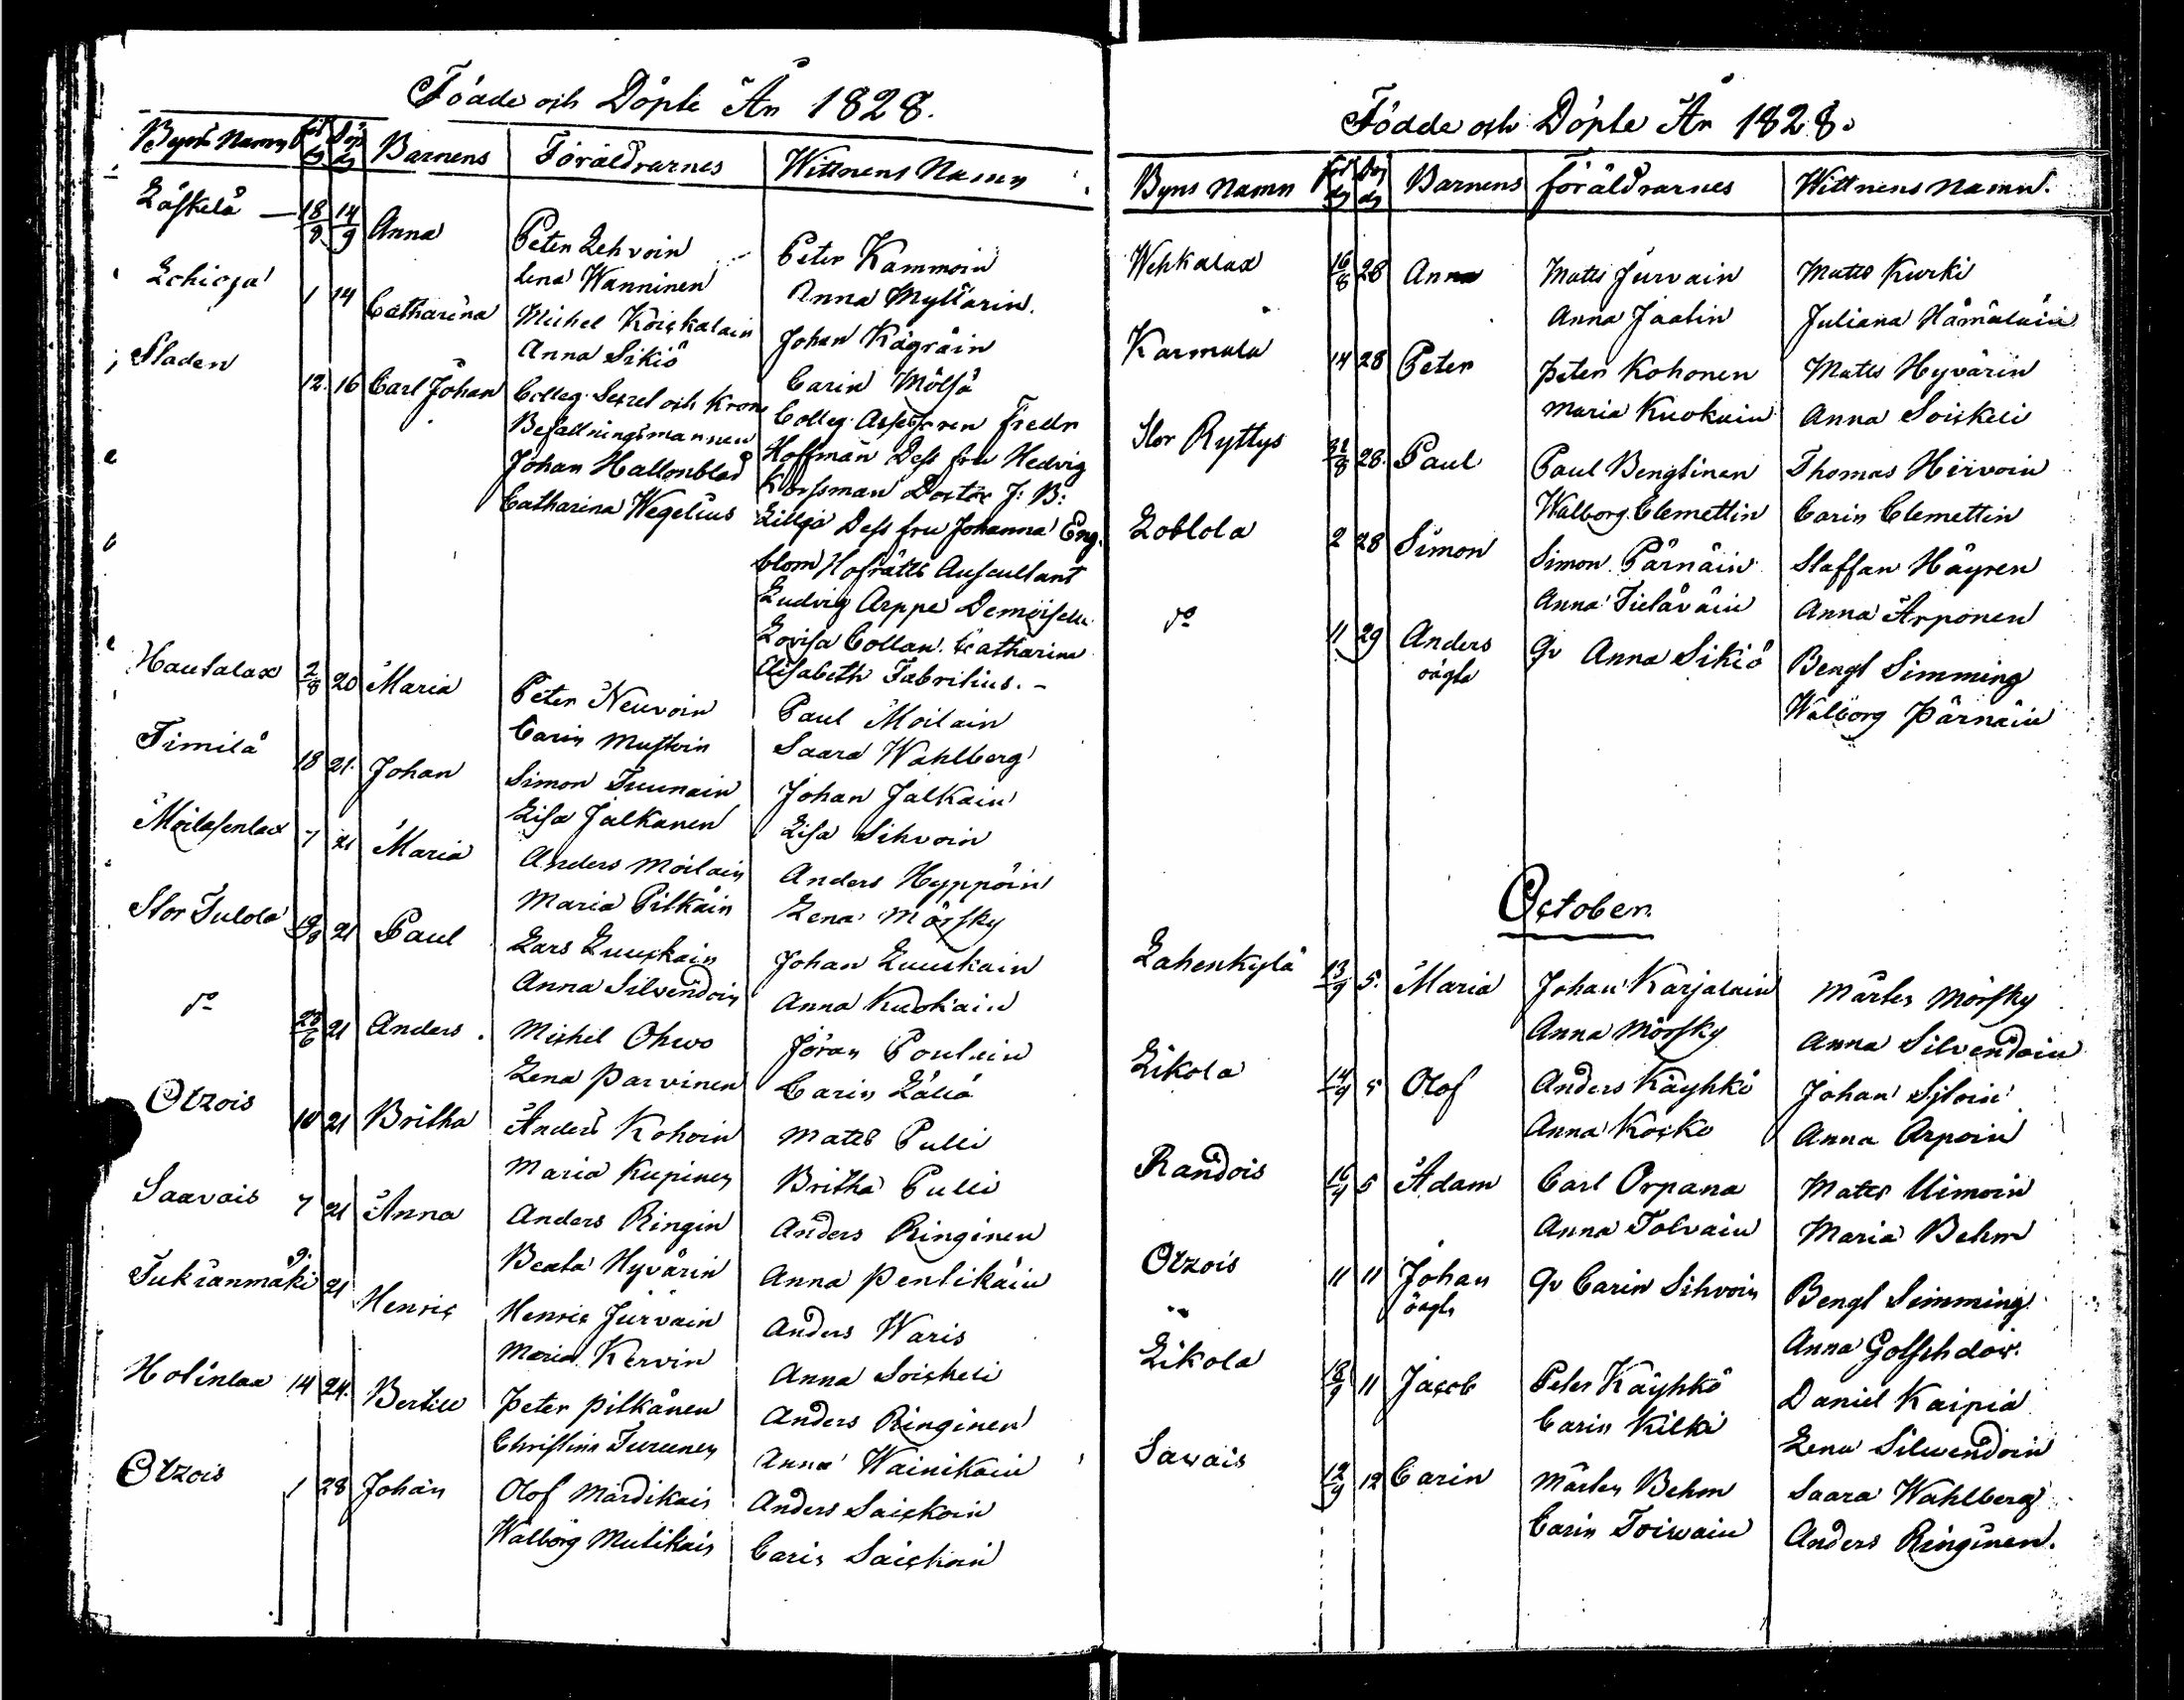 Födde och Döpte År 1828.
Byns Namn Föd dg Döp dg Barnens Föräldrarnes Wittnens Namn
Läskelä — 18/8 14/9 Anna Peter Lehvoin Peter Kammoin
Lena Wanninen Anna Myllärin.
Lehicja 1 14 Catharina Michel Koickalain Johan Kägräin
Anna Sikiö Carin Mölsä
Staden 12. 16 Carl Johan Colleg. Secret och Krono Colleg. Assessoren Fredr
Befallningsmannen Hoffman Dess fru Hedvig
Johan Hallonblad Korsman Doctor J: B:
Catharina Wegelius Lillja Dess fru Johanna Eng-
blom Hofrätts Auscultant
Ludvig Arppe Demoiselle
Lovisa Collan. Catharina
Elisabeth Fabritius. -
Hautalax 2/8 20 Maria Peter Neuvoin Paul Moilain
Carin Mustoin Saara Wahlberg
Timilä 18 21. Johan Simon Tuunain Johan Jalkain
Lisa Jalkanen Lisa Sihvoin
Moilasenlax 7 21 Maria Anders Moilain Anders Hyppöin
Maria Pitkäin Lena Mörsky
Stor Tulola 19/8 21 Paul Lars Luuckain Johan Luuskain
Anna Silvendoin Anna Kuokain
do 21 Anders. Michel Ohwo Jöran Poulain
Lena Parvinen Carin
Otzois 10 21 Britha Anders Kohoin Matts Pulli
Maria Kupinen Britha Pulli
Saavais 7 21 Anna Anders Ringin Anders Ringinen
Beata Hyvärin Anna Pentikäin
Tukianmäki 9. 21 Henric Henric Jürväin Anders Waris
Maria Kervin Anna Soickeli
Hotinlax 14 24. Bertill Peter Pitkänen Anders Ringinen
Christina Turunen Anna Wainikain
Otzois 1 28 Johan Olof Mardikain Anders Saickoin
Walborg Mutikain Carin Saickoin
Födde och Döpte År 1828.
Byns Namn Föd dg Döp dg Barnens föräldrarnes Wittnens namn.
Wehkalax 16/8 28 Anna Matts Jurvain Matts Kurki
Anna Jaatin Juliana Hämäläin
Karmala 14 28 Peter Peter Kohonen Matts Hyvärin
Maria Kuokain Anna Soickeli
Stor Ryttys 31/8 28. Paul Paul Bengtinen Thomas Hirvoin
Walborg Clemettin Carin Clemettin
Loblola 2 28 Simon Simon Pärnäin Staffan Häyren
Anna Tieläväin Anna Arponen
do 11 29 Anders Qv Anna Sikiö Bengt Simming
oägta Walborg Pärnäin
October
Lahenkylä 13/9 5. Maria Johan Karjalain Mårten Mörsky
Anna Mörsky Anna Silvendoin
Likola 14/9 5 Olof Anders Käyhkö Johan Siloin
Anna Kocko Anna Arpoin
Randois 16/9 5 Adam Carl Orpana Matts Uimoin
Anna Tolvain Maria Behm
Otzois 11 11 Johan Qv Carin Sihvoin Bengt Simming
oägta Anna
Likola 18/9 11 Jacob Peter Käyhkö Daniel Kaipia
Carin Kilki Lena Silvendoin
Savais 12/9 12 Carin Mårten Behm Saara Wahlberg
Carin Toiwain Anders Ringinen.